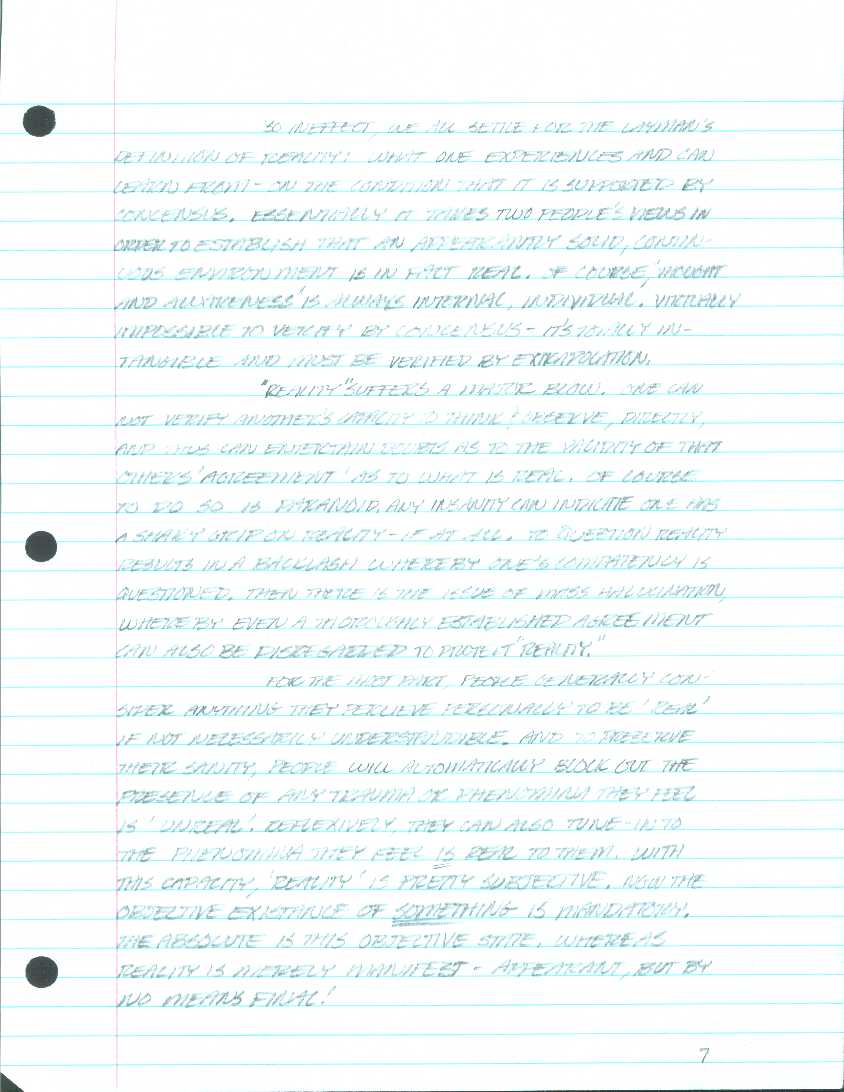 SO INEFFECT, WE ALL SETTLE FOR THE LAYMAN'S
DEFINITION OF REALITY: WHAT ONE EXPERIENCES AND CAN
LEARN FROM - ON THE CONDITION THAT IT IS SUPPORTED BY
CONCENSUS. ESSENTIALLY IT TAKES TWO PEOPLE'S VIEWS IN
ORDER TO ESTABLISH THAT AN APPEARANTLY SOLID, CONTIN-
UOUS ENVIRONMENT IS IN FACT REAL. OF COURSE, 'THOUGHT
AND AWARENESS' IS ALWAYS INTERNAL, INDIVIDUAL. VIRTUALLY
IMPOSSIBLE TO VERIFY BY CONCENSUS - IT'S TOTALLY IN-
TANGIBLE AND MUST BE VERIFIED BY EXTRAPOLATION.
"REALITY" SUFFERS A MAJOR BLOW. ONE CAN
NOT VERIFY ANOTHER'S CAPACITY TO THINK & OBSERVE, DIRECTLY,
AND THUS CAN ENTERTAIN DOUBTS AS TO THE VALIDITY OF THAT
OTHERS 'AGREEMENT' AS TO WHAT IS REAL. OF COURSE
TO DO SO IS PARANOID. ANY INSANITY CAN INDICATE ONE HAS
A SHAKY GRIP ON REALITY - IF AT ALL. TO QUESTION REALITY
RESULTS IN A BACKLASH WHEREBY ONE'S COMPATENCY IS
QUESTIONED. THEN THERE IS THE ISSUE OF MASS HALLUCINATION,
WHEREBY EVEN A THOROUGHLY ESTABLISHED AGREEMENT
CAN ALSO BE DISREGARDED TO PROTECT "REALITY."
FOR THE MOST PART, PEOPLE GENERALLY CON-
SIDER ANYTHING THEY PERCIEVE PERSONALLY TO BE 'REAL'
IF NOT NECESSARILY UNDERSTANDABLE. AND TO PRESERVE
THEIR SANITY, PEOPLE WILL AUTOMATICALLY BLOCK OUT THE
PRESENCE OF ANY TRAUMA OR PHENOMINA THEY FEEL
IS 'UNREAL'. REFLEXIVELY, THEY CAN ALSO TUNE-IN TO
THE PHENOMINA THEY FEEL IS REAL TO THEM. WITH
THIS CAPACITY, 'REALITY' IS PRETTY SUBJECTIVE. NOW THE
OBJECTIVE EXISTANCE OF SOMETHING IS MANDATORY.
THE ABSOLUTE IS THIS OBJECTIVE STATE. WHEREAS
REALITY IS MERELY MANIFEST - APPEARANT, BUT BY
NO MEANS FINAL!
7